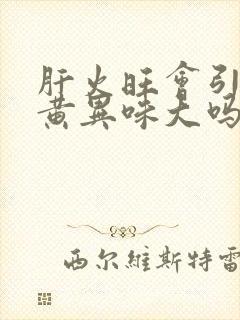 肝火旺會引
黄異味大吗
西尔維斯特雷